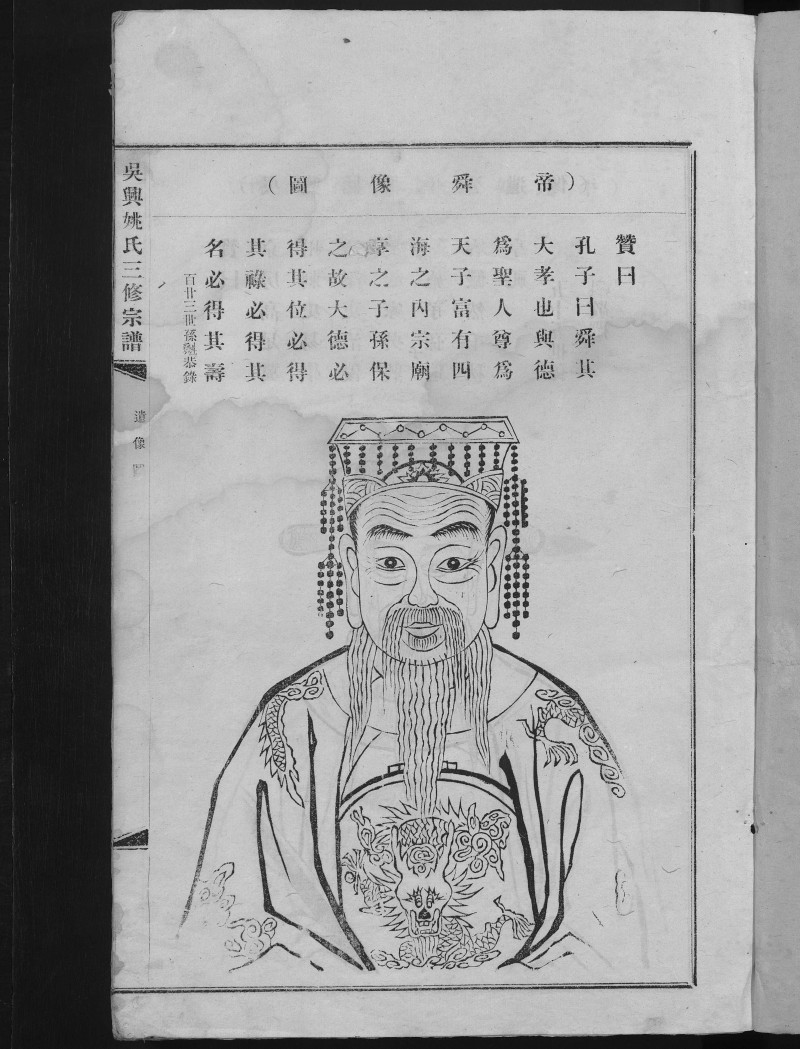 (帝舜像圖)
贊曰
孔子曰舜其
大孝也與德
爲聖人尊爲
天子富有四
海之内宗廟
享之子孫保
之故大德必
得其位必得
其祿必得其
名必得其壽
百廿三世孫恭錄
吳興姚氏三修宗譜
遺像圖